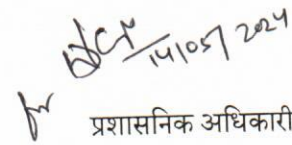 14/05/2024
प्रशासनिक अधिकारी